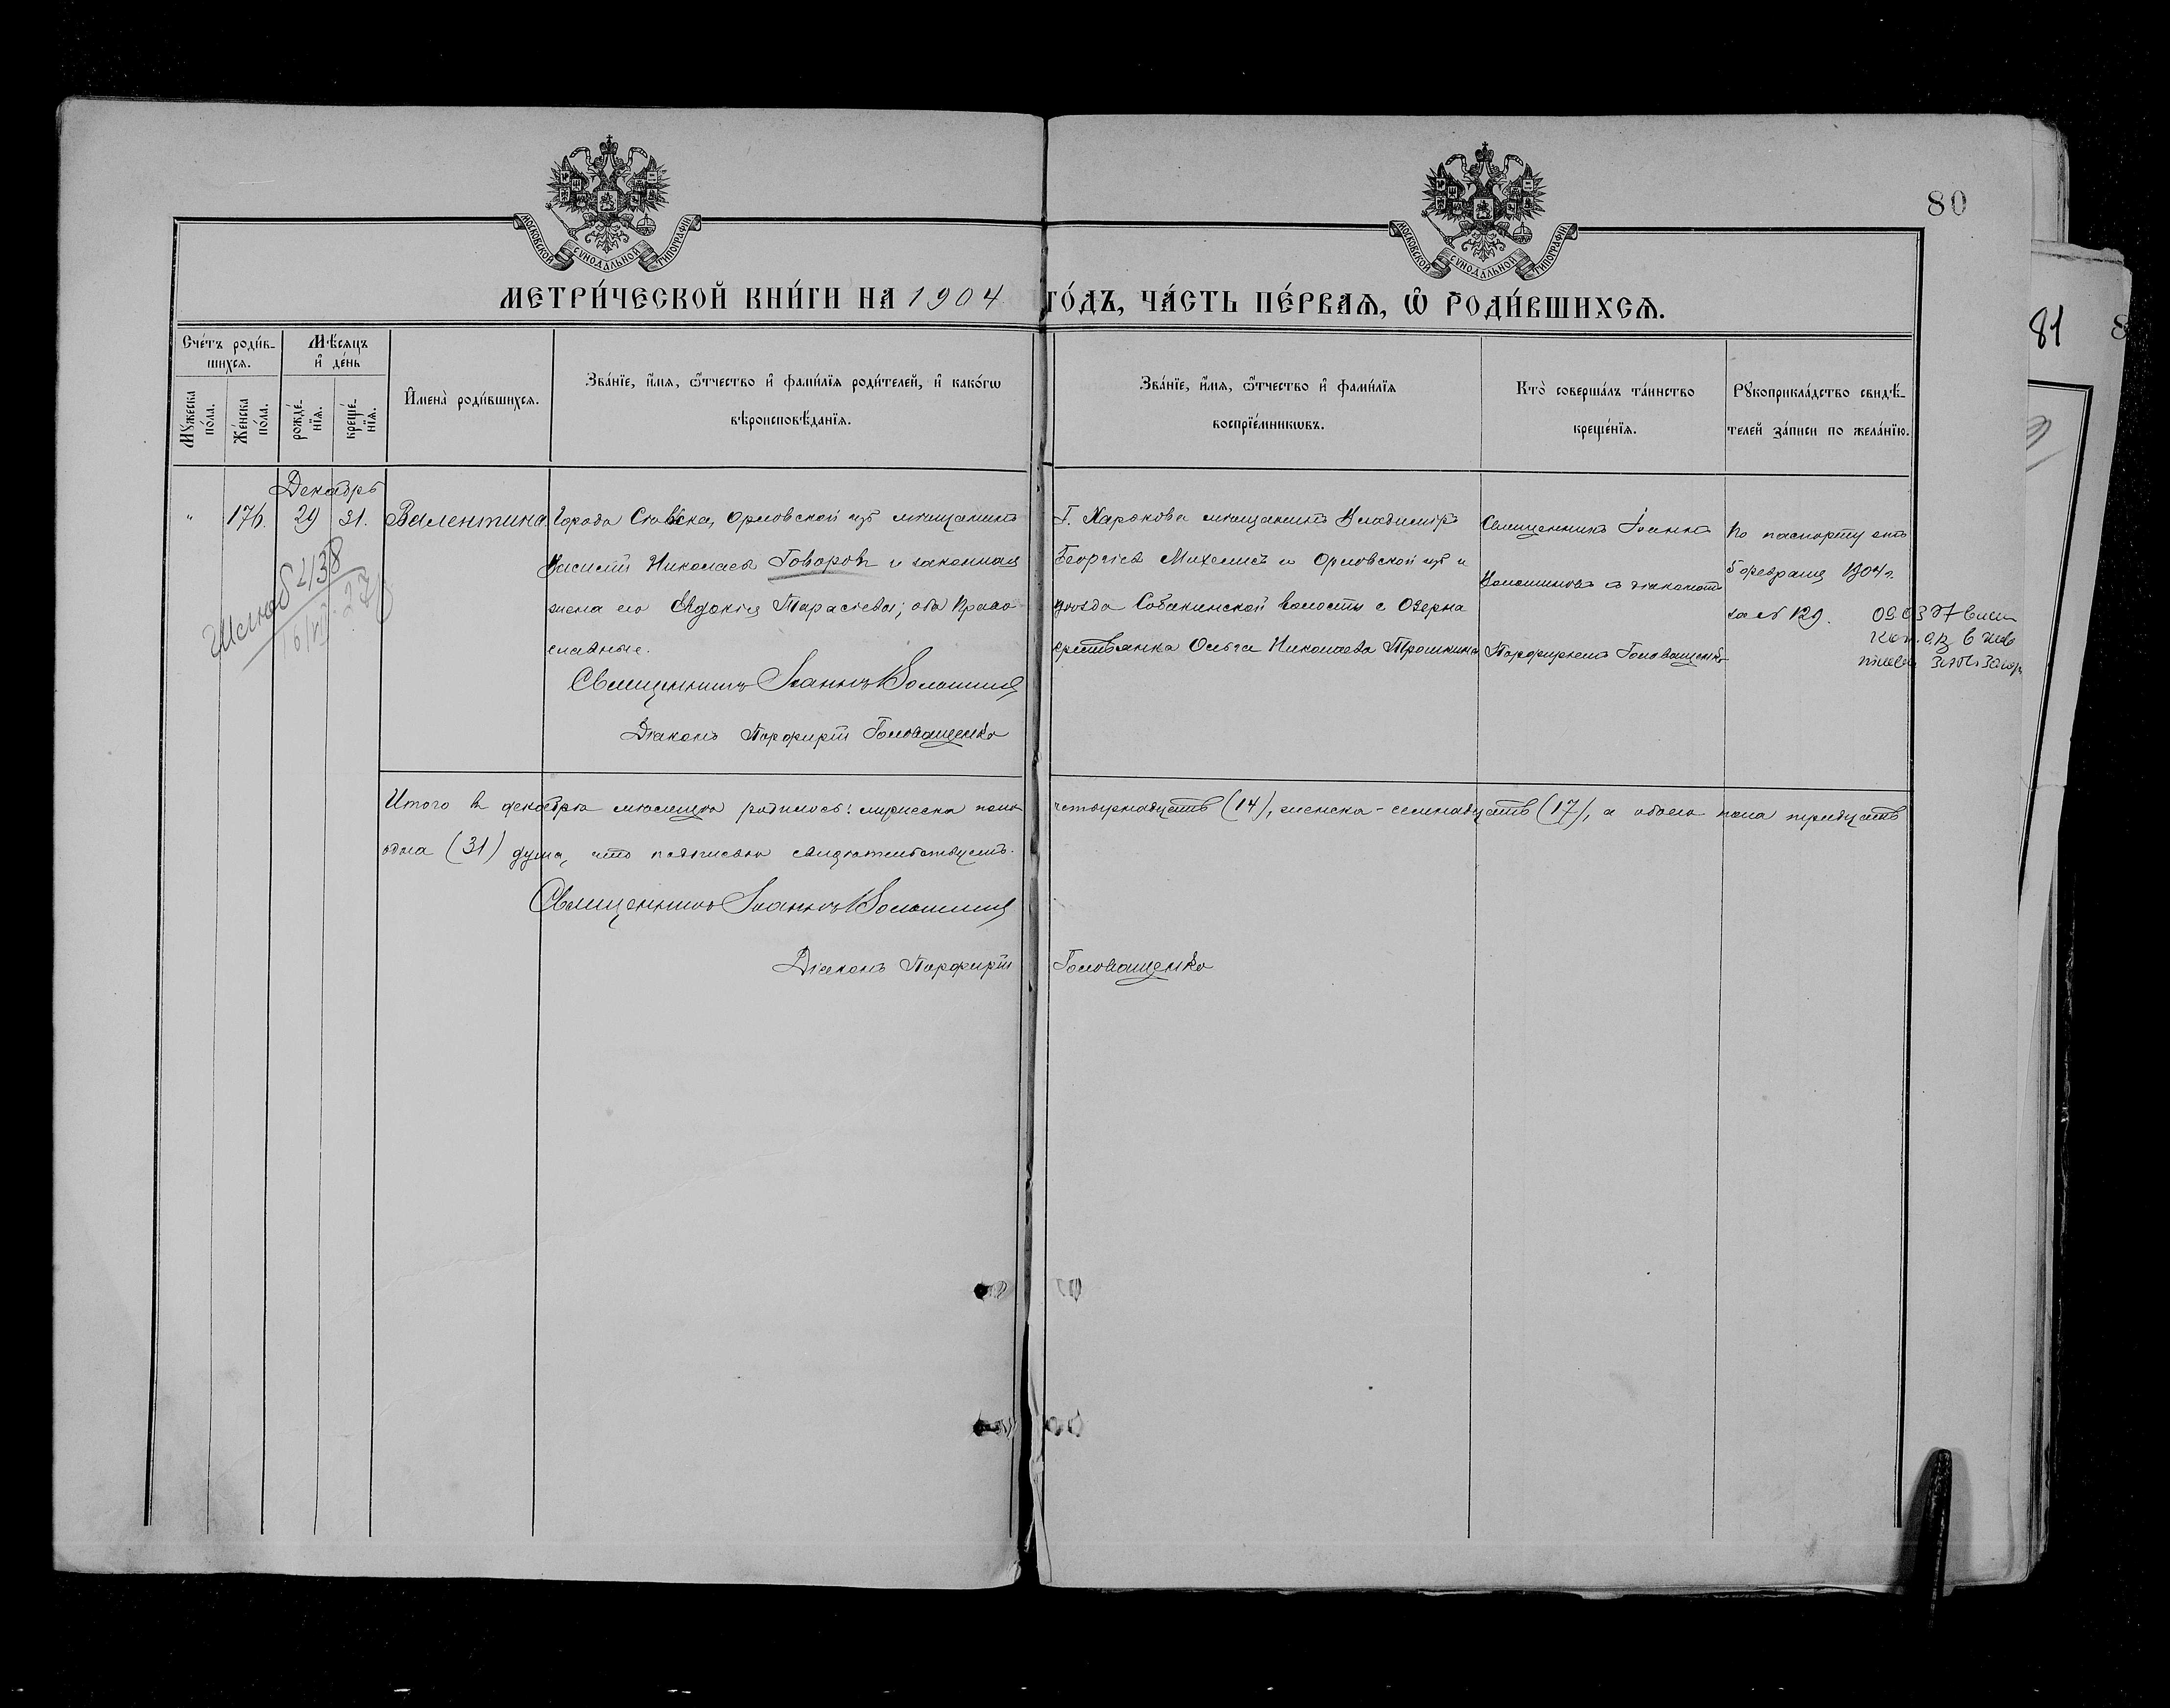 МОСКОВСКОЙ СѴНОДАЛЬНОЙ ТИПОГРАФІИ
МОСКОВСКОЙ СѴНОДАЛЬНОЙ ТИПОГРАФІИ
80
МЕТРИ́ЧЕСКОЙ КНИ́ГИ НА 1904 ГО́ДЪ, ЧА́СТЬ ПЕ́РВАѦ, Ѡ҆ РОДИ́ВШИХСѦ.
81
Сче́тъ роди́в-
шихсѧ.
Мѣсѧцъ
и҆ де́нь
Мꙋ́жеска
по́ла.
Же́нска
по́ла.
рожде́-
нїѧ.
креще́-
нїѧ.
И҆мена̀ роди́вшихсѧ.
Зва́нїе, и҆́мѧ, ѻ҆́тчество и҆ фами́лїѧ роди́телей, и҆ како́гѡ
вѣроисповѣ́данїѧ.
Зва́нїе, и҆́мѧ, ѻ҆́тчество и҆ фами́лїѧ
воспрїе́мникѡвъ.
Кто̀ соверша́лъ та́инство
креще́нїѧ.
Рꙋкоприкла́дство свидѣ́-
телей за́писи по жела́нїю.
Декабрь
" 176. 29 31. Валентина.
Города Сѣвска, Орловской губ мѣщанинъ
Василій Николаевъ Говоровъ и законная
жена его Евдокія Тарасіева; оба Право-
славные.
Священникъ Іоаннъ Волошинъ
Діаконъ Порфирій Головащенко
Г. Харькова мѣщанинъ Владиміръ
Георгіевъ и Орловской губ и
уѣзда Собакинской волости с Озерна
крестьянка Ольга Николаева Трошкина
Священникъ Іоаннъ
Волошиновъ съ діакономъ
Порфиріемъ Головащенко
По паспорту отъ
5 февраля 1904 г.
за № 129.
Итого въ декабрѣ мѣсяцѣ родилось: мужеска пола четырнадцать (14), женска - семнадцать (17), а обоего пола тридцать
одна (31) душа, что подписью свидѣтельствуемъ.
Священникъ Іоаннъ Волошинъ
Діаконъ Порфирій Головащенко